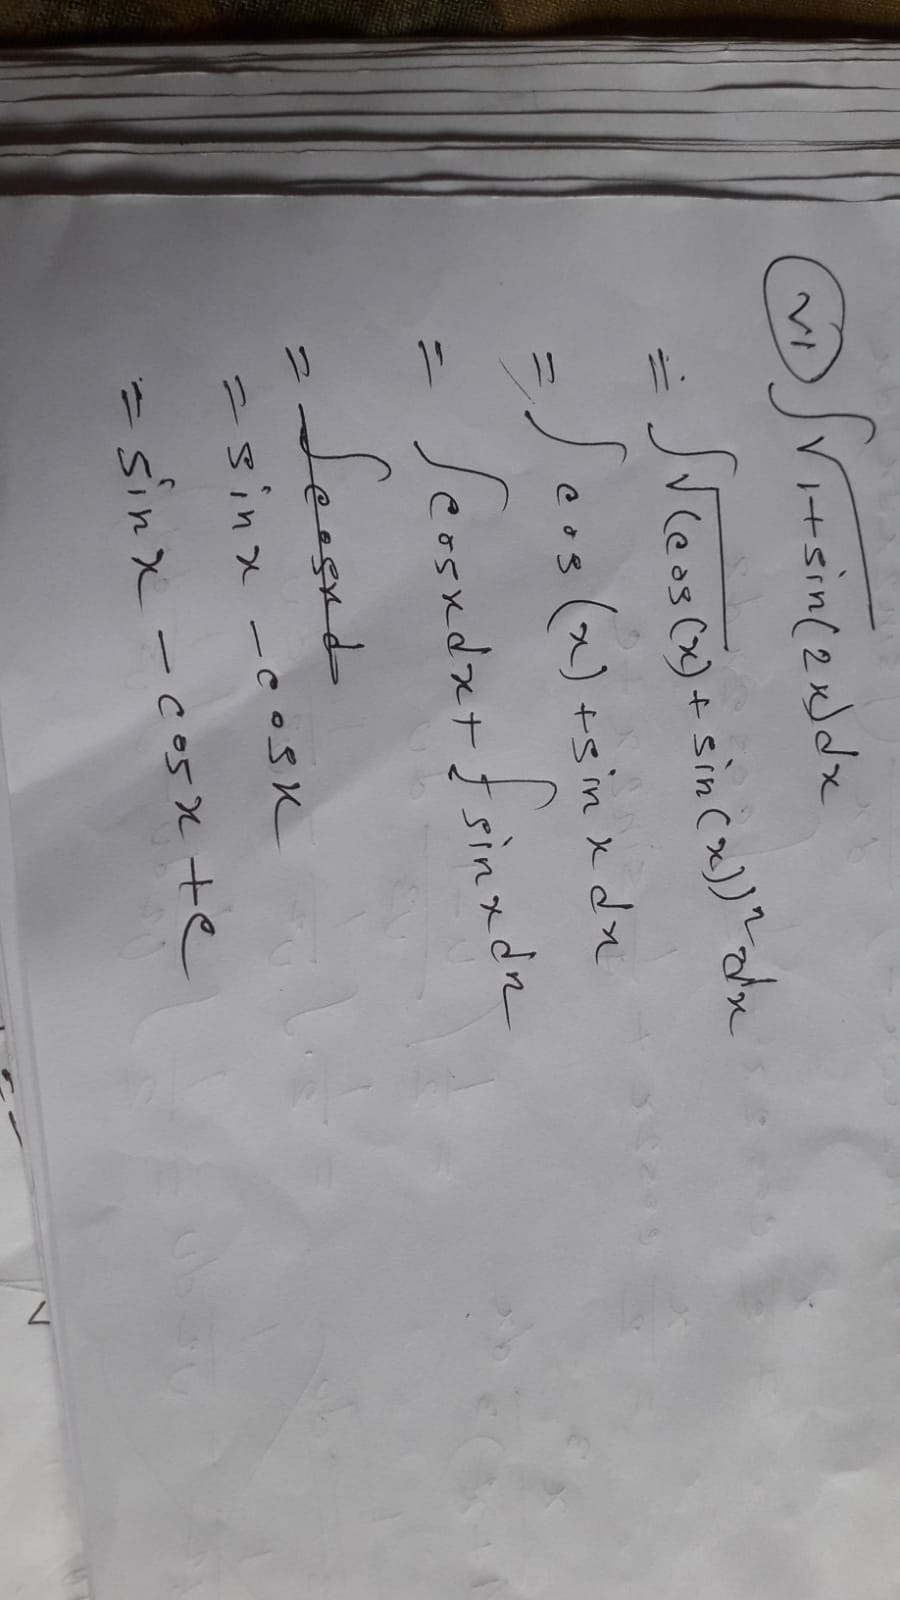 (vi) ∫√1+sin(2x)dx
= ∫√(cos(x)+sin(x))² dx
= ∫cos(x)+sin x dx
= ∫cosxdx+∫sinxdx
= ∫cosxd
= sinx -cosx
= sinx - cosx +c